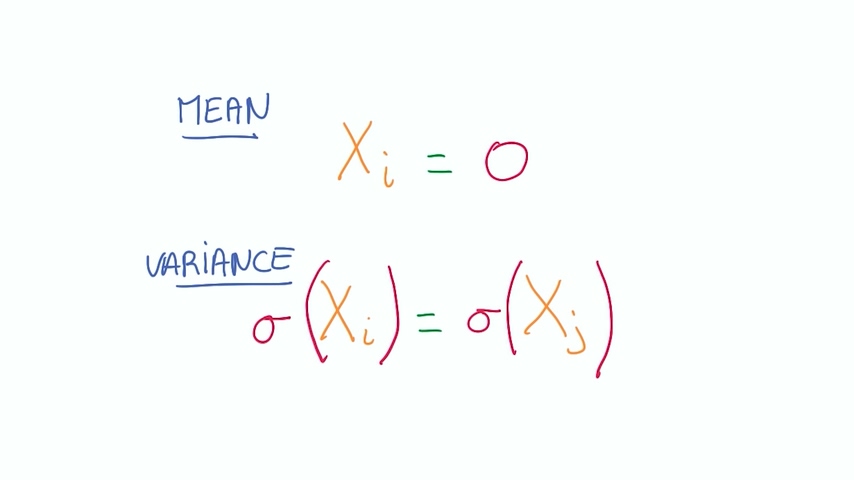 MEAN
Xi = 0
VARIANCE
σ(Xi) = σ(Xj)